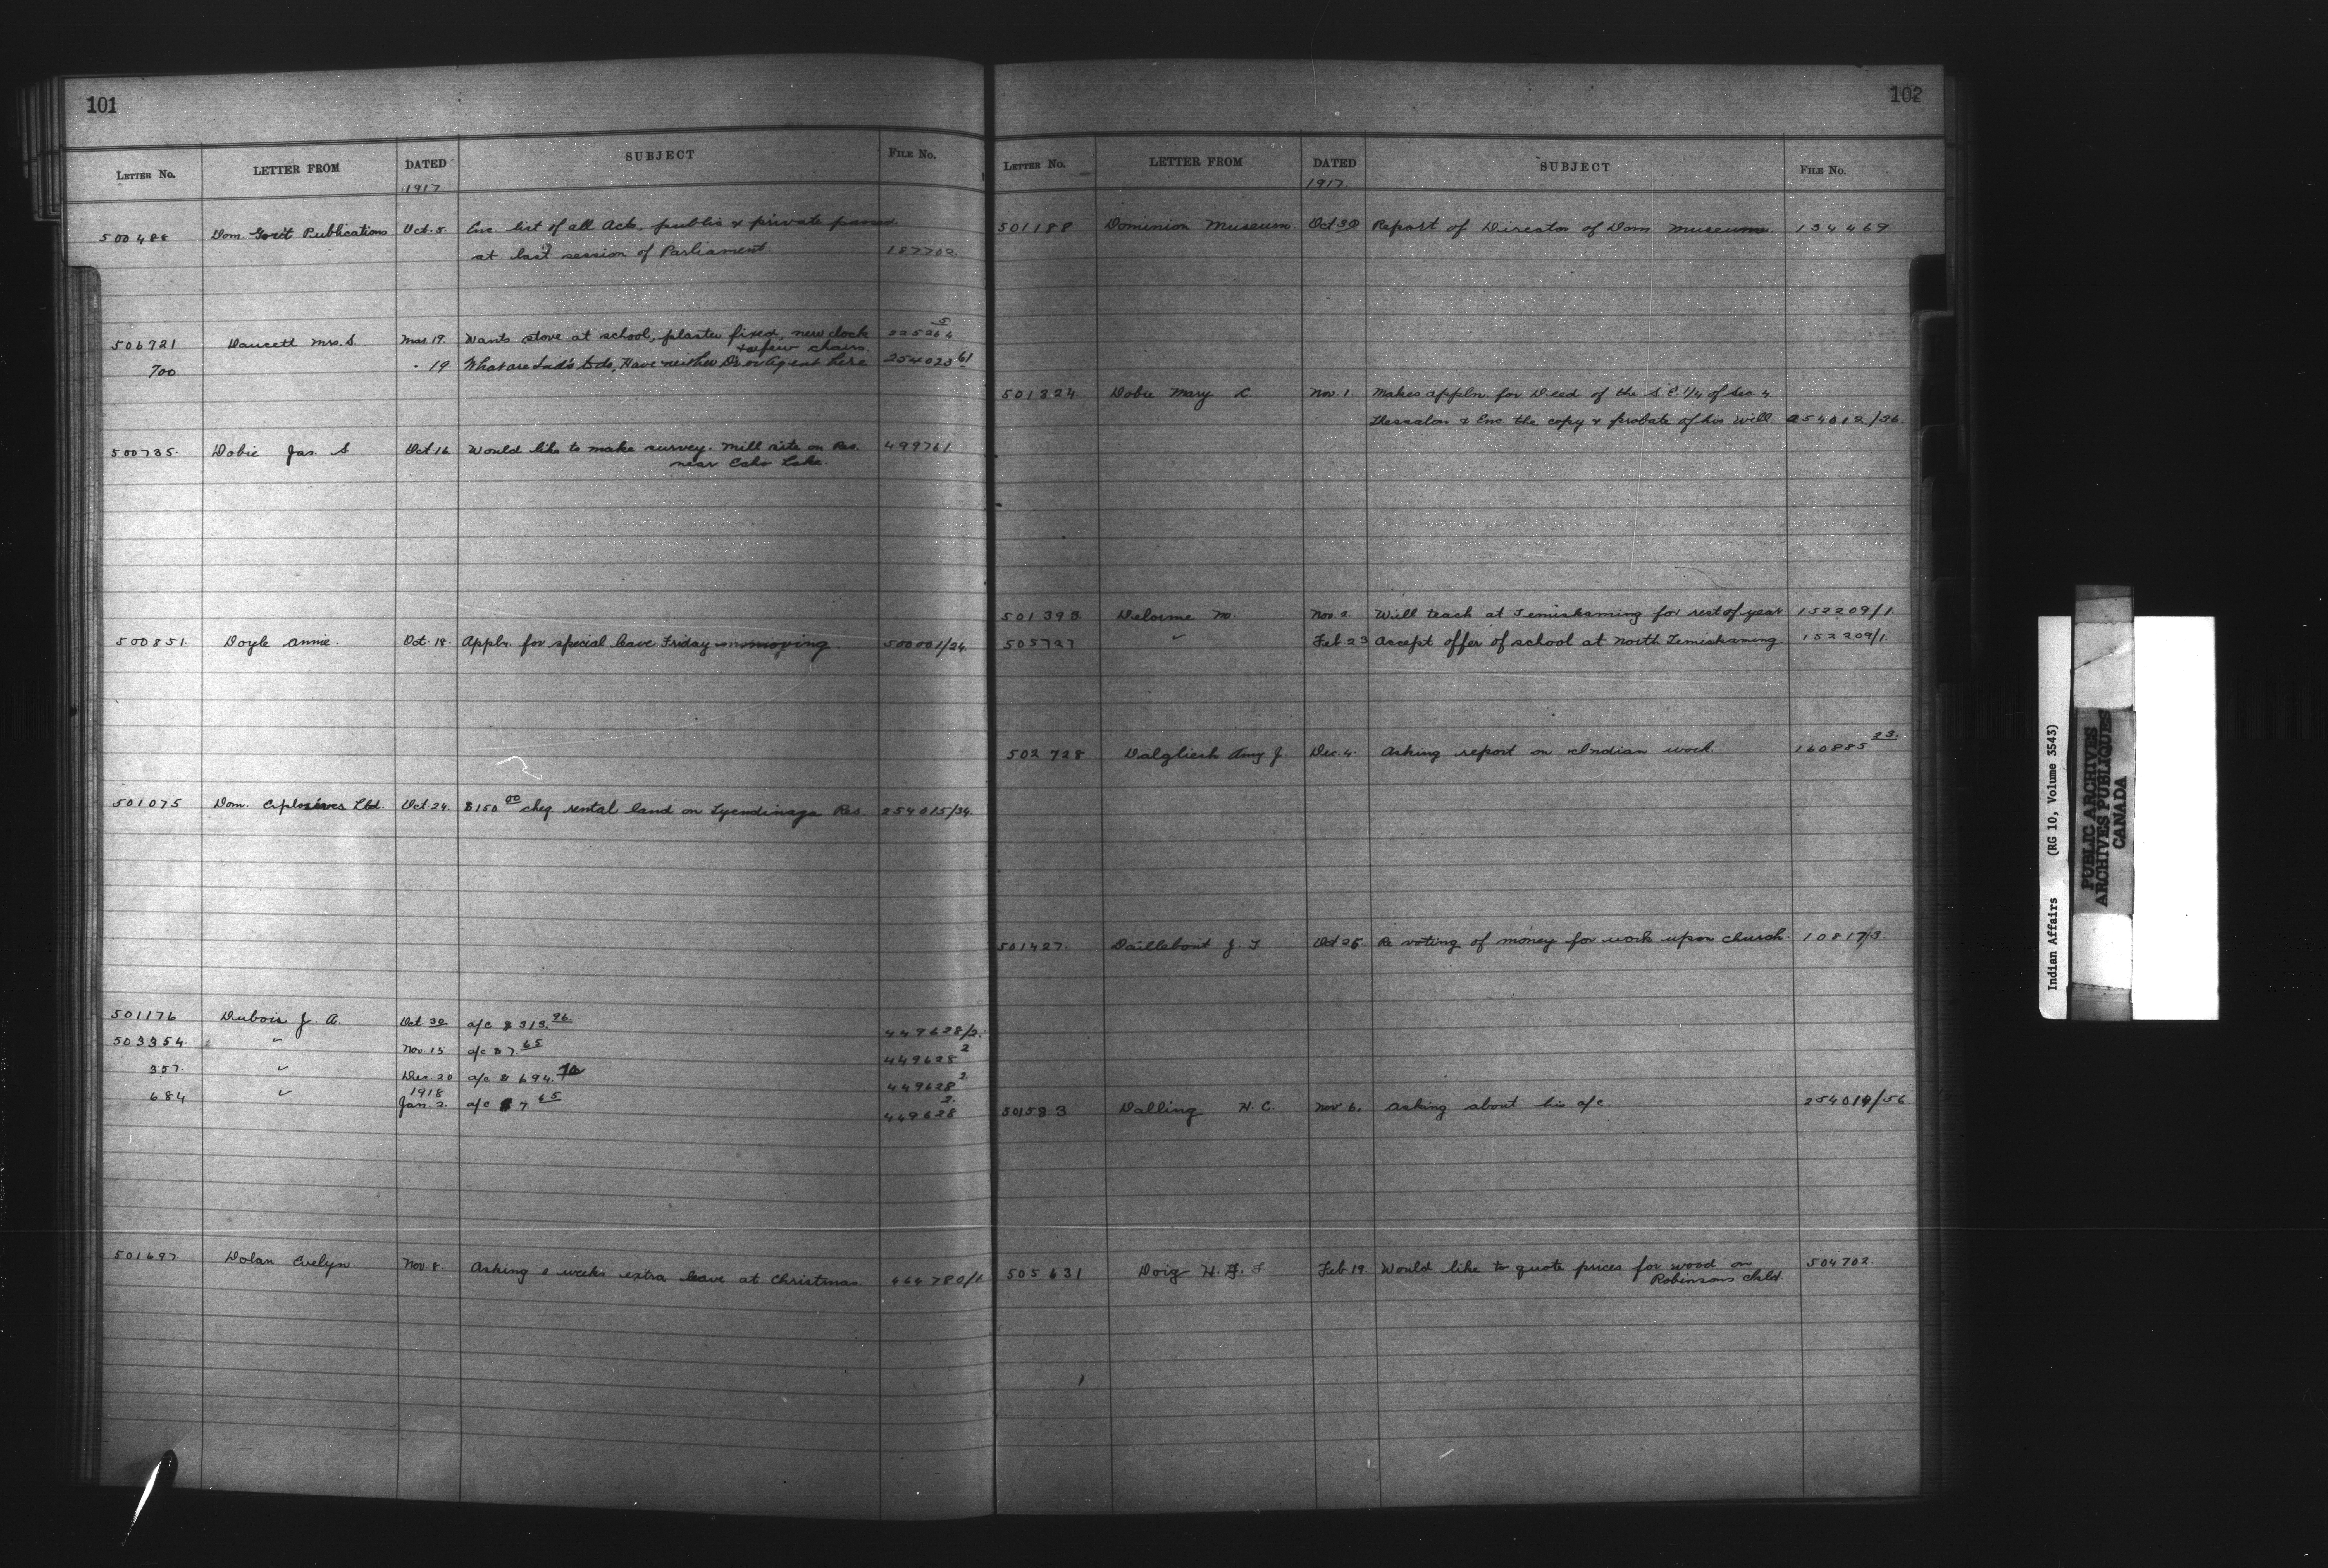 101
LETTER NO. LETTER FROM DATED SUBJECT FILE NO.
1917
500488 Dom Govt Publications Oct. 5. Enc. list of all Acts, public & private passed
at last session of Parliament 187702.
506721 Daucett Mrs. S. Mar. 19. Wants stove at school, plaster fixed, new clock 225264 5
& a few chairs.
700 " 19 What are Ind's to do, Have neither Dr or Agent here 254023 61
500735. Dobie Jas. S Oct 16 Would like to make survey. Mill site on Res. 499761.
near Echo Lake.
500851. Doyle Annie. Oct. 18. Appln. for special leave Friday moving. 500001/24.
501075 Dom. Explosives Ltd. Oct 24. $150 00 cheq rental land on Tyendinaga Res 254015/34.
501176 Dubois J. A. Oct 30 a/c $313. 96. 449628/2.
503354. " Nov. 15 a/c $7. 65 449628 2
357. " Dec. 20 a/c $694. 449628 2.
684 " 1918
Jan. 2. a/c $7 65 449628 2.
501697. Dolan Evelyn Nov. 8. Asking weeks extra leave at Christmas. 464780/1
102
LETTER NO. LETTER FROM DATED SUBJECT FILE NO.
1917.
501188 Dominion Museum. Oct 30 Report of Director of Dom. Museum. 134469.
501324. Dobie Mary C. Nov. 1. Makes appln for Deed of the S E 1/4 of Sec. 4
Thessalon & Enc the copy & probate of his Will. 254012/36.
501393. Delorme M. Nov. 2. Will teach at Temiskaming for rest of year 152209/1.
505727 " Feb 23 Accept offer of school at North Temiskaming. 152209/1.
502728 Dalgliesh Amy J. Dec. 4. Asking report on Indian work. 160885 23.
501427. Daillebout J. T Oct 25. Re voting of money for work upon church. 10817/3.
501583 Dalling H. C. Nov 6. Asking about his a/c. 254014/56.
505631 Doig Feb 19. Would like to quote prices for wood on 504702.
Robinsons chld.
Indian Affairs (RG 10, Volume 3543)
PUBLIC ARCHIVES
ARCHIVES PUBLIQUES
CANADA